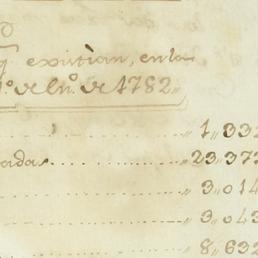 q̃ existian, en la
1º. de En.º de 1782„
„ 1„332
adas „ 23„373
„ 3„014
„ 3„043
„ 8„632